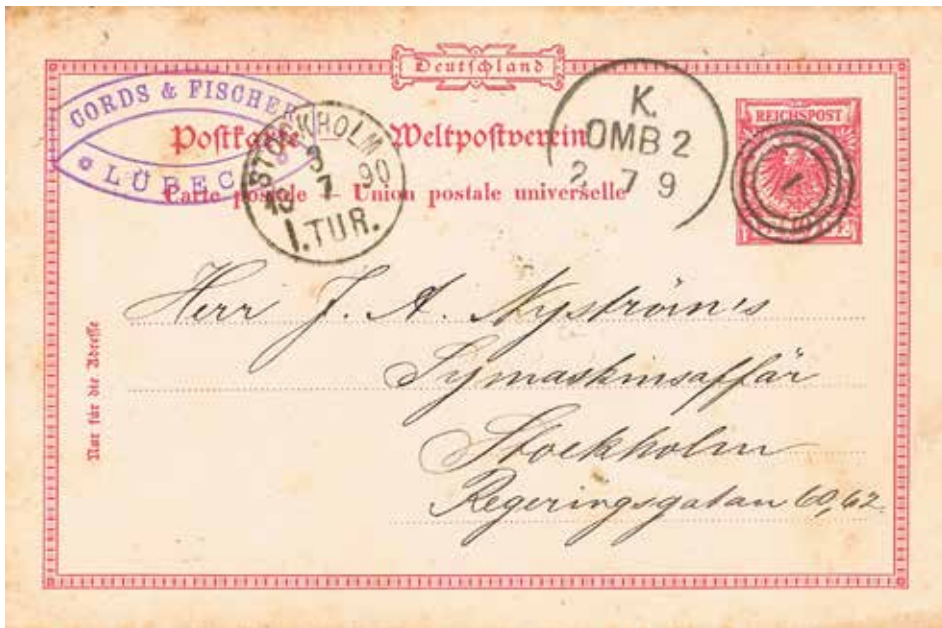 Deutschland
CORDS & FISCHER
LÜBECK
Postkarte – Weltpostverein
Carte postale – Union postale universelle
STOCKHOLM
3
7
90
I.TUR.
K.
OMB 2
2 7 9
REICHSPOST
1
Herr J. A. Nyström's
Symaskinsaffär
Stockholm
Regeringsgatan 60, 62.
Nur für die Adresse